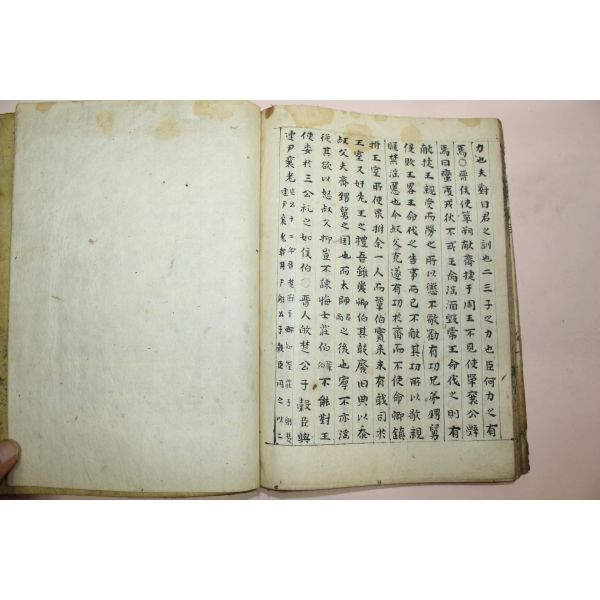 力也夫對曰君之訓也二三子之力也臣何力之有
焉〇晋侯使鞏朔献齊捷于周王不見使單襄公辞
焉曰蠻夷戎狄不式王命淫湎毁常王命伐之則有
献捷王親受而勞之所以懲不敬勸有功兄弟甥舅
侵敗王畧王命伐之告事而已不献其功所以敬親
暱禁淫慝也今叔父克遂有功於齊而不使命卿鎮
撫王室所使来撫余一人而鞏伯實来未有職司於
王室又奸先王之禮吾雖欲鞏伯其敢廢旧典以忝
叔父夫齊甥舅之国也而太師之後也寧不亦淫
從其欲以怒叔父抑豈不諫悔士莊伯不能對王
使委於三公礼之如侯伯〇晋人敀楚公子穀臣與
連尹襄老